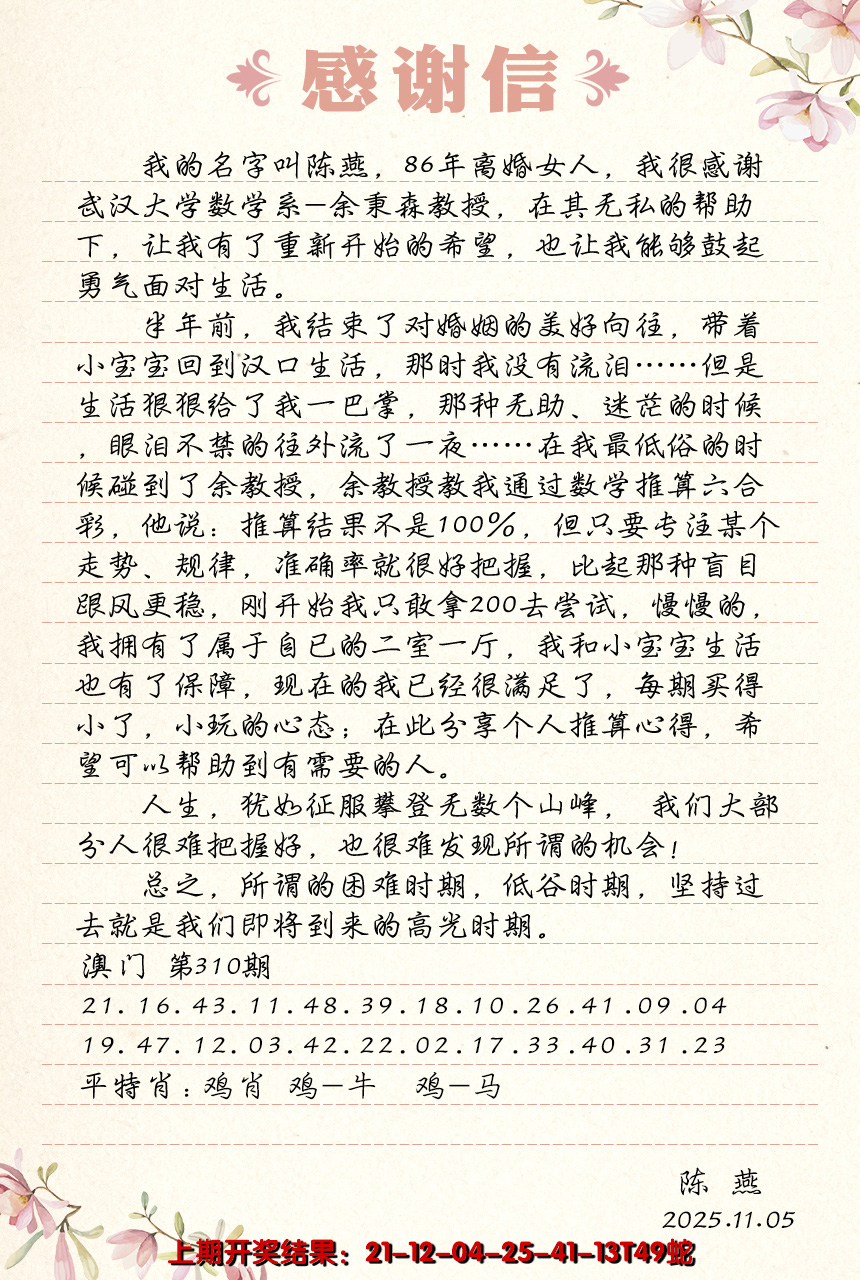 感谢信
我的名字叫陈燕，86年离婚女人，我很感谢
武汉大学数学系—余秉森教授，在其无私的帮助
下，让我有了重新开始的希望，也让我能够鼓起
勇气面对生活。
半年前，我结束了对婚姻的美好向往，带着
小宝宝回到汉口生活，那时我没有流泪……但是
生活狠狠给了我一巴掌，那种无助、迷茫的时候
，眼泪不禁的往外流了一夜……在我最低俗的时
候碰到了余教授，余教授教我通过数学推算六合
彩，他说：推算结果不是100%，但只要专注某个
走势、规律，准确率就很好把握，比起那种盲目
跟风更稳，刚开始我只敢拿200去尝试，慢慢的，
我拥有了属于自已的二室一厅，我和小宝宝生活
也有了保障，现在的我已经很满足了，每期买得
小了，小玩的心态；在此分享个人推算心得，希
望可以帮助到有需要的人。
人生，犹如征服攀登无数个山峰， 我们大部
分人很难把握好，也很难发现所谓的机会！
总之，所谓的困难时期，低谷时期，坚持过
去就是我们即将到来的高光时期。
澳门 第310期
21.16.43.11.48.39.18.10.26.41.09.04
19.47.12.03.42.22.02.17.33.40.31.23
平特肖：鸡肖 鸡—牛 鸡—马
陈 燕
2025.11.05
上期开奖结果：21-12-04-25-41-13T49蛇